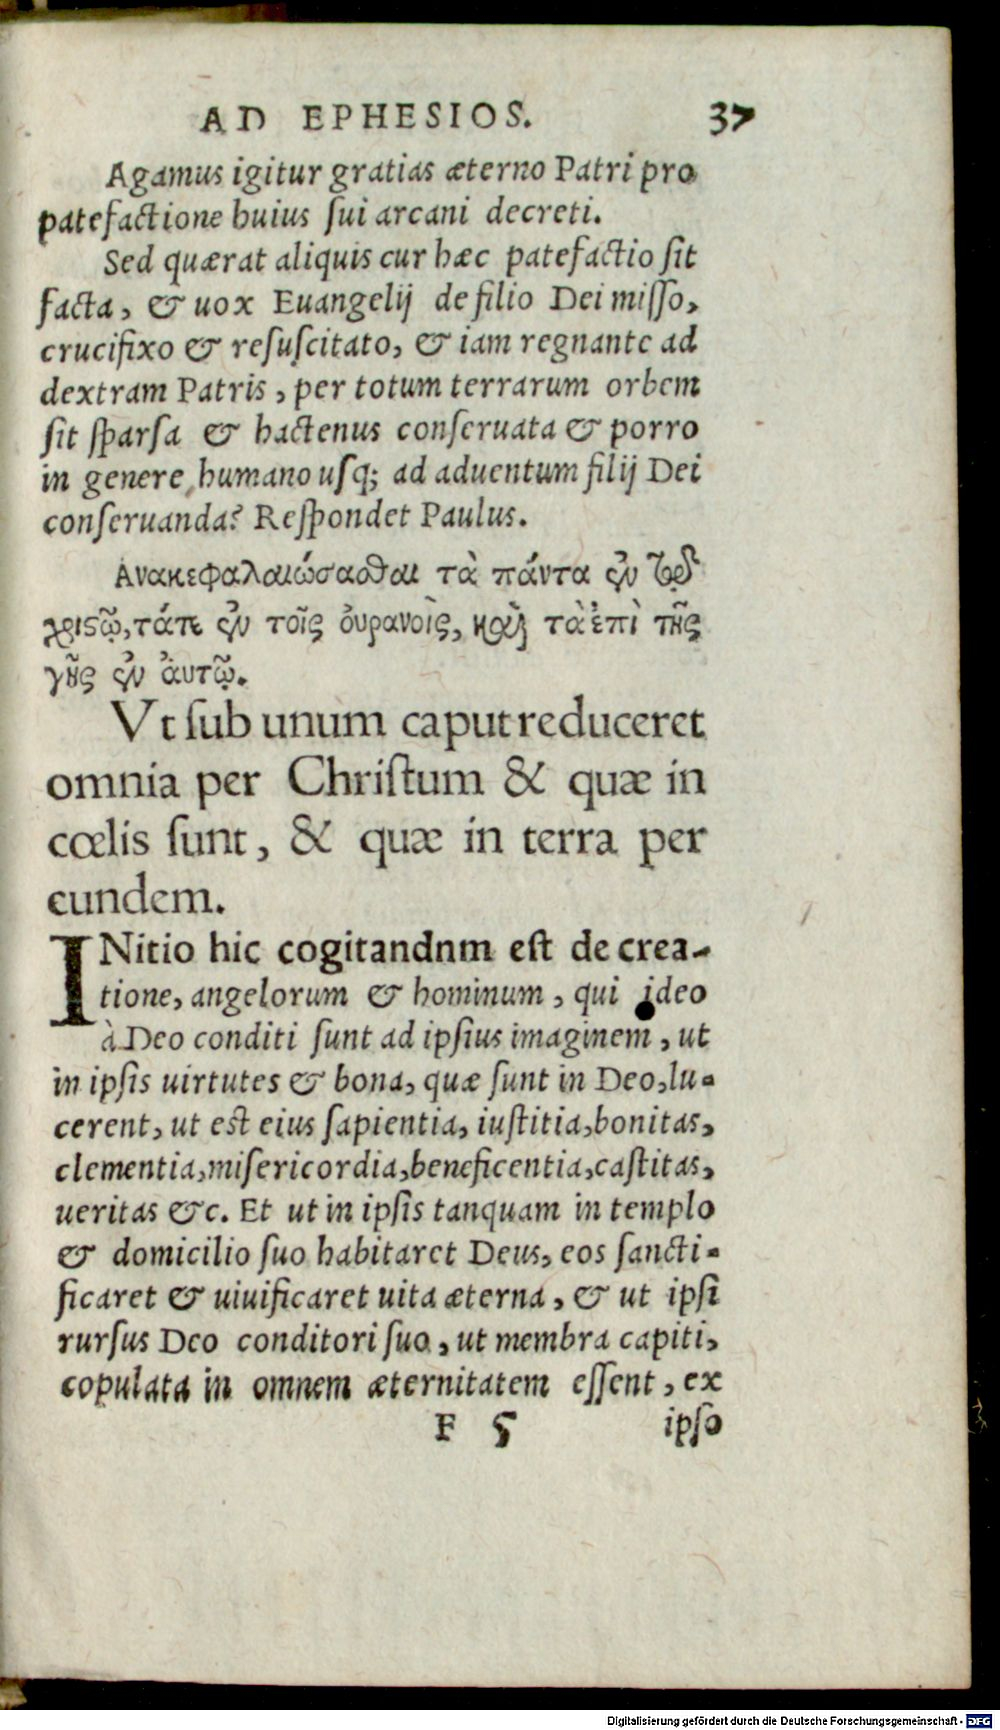 AD EPHESIOS. 37
Agamus igitur gratias æterno Patri pro
patefactione huius ſui arcani decreti.
Sed quærat aliquis cur hæc patefactio ſit
facta, & uox Euangelij de filio Dei miſſo,
crucifixo & reſuſcitato, & iam regnante ad
dextram Patris, per totum terrarum orbem
ſit ſparſa & hactenus conſeruata & porro
in genere humano uſq; ad aduentum filij Dei
conſeruanda? Reſpondet Paulus.
Ἀνακεφαλαιώσασθαι τὰ πάντα ἐν τῷ
χριστῷ, τάτε ἐν τοῖς ὀυρανοῖς, καὶ τὰ ἐπὶ τῆς
γῆς ἐν ἀυτῷ.
Vt ſub unum caput reduceret
omnia per Chriſtum & quæ in
cœlis ſunt, & quæ in terra per
eundem.
INitio hic cogitandnm eſt de crea-
tione, angelorum & hominum, qui ideo
à Deo conditi ſunt ad ipſius imaginem, ut
in ipſis uirtutes & bona, quæ ſunt in Deo, lu-
cerent, ut eſt eius ſapientia, iuſtitia, bonitas,
clementia, miſericordia, beneficentia, caſtitas,
ueritas &c. Et ut in ipſis tanquam in templo
& domicilio ſuo habitaret Deus, eos ſancti-
ficaret & uiuificaret uita æterna, & ut ipſi
rurſus Deo conditori ſuo, ut membra capiti,
copulata in omnem æternitatem eſſent, ex
F 5 ipſo
Digitalisierung gefördert durch die Deutsche Forschungsgemeinschaft - DFG